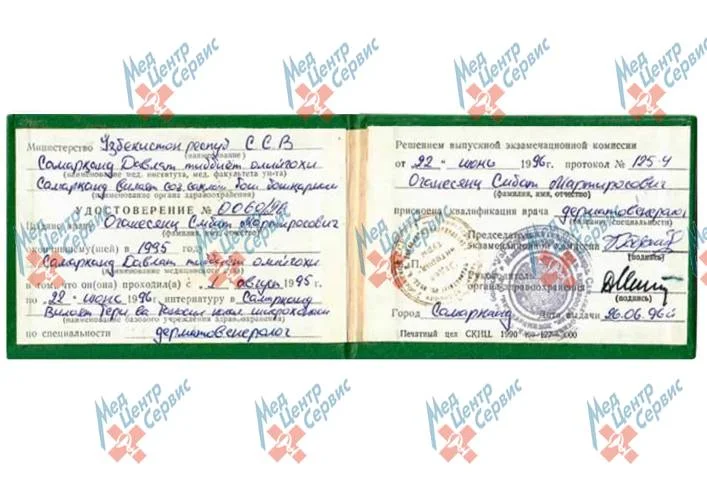 Министерство Узбекистон респуб С С В
(наименование)
Самарканд Давлат тиббиёт олийгохи
(наименование мед. института, мед. факультета ун-та)
Самарканд Вилоят соглаклаш бош бошкармаси
(наименование органа здравоохранения)
УДОСТОВЕРЕНИЕ № 0060/96
Выдано врачу Оганесянц Смбат Мартиросович
(фамилия, имя, отчество)
окончившему(шей) в 1995 году
Самарканд Давлат тиббиёт олийгохи
в том, что он(она) проходил(а) с августа 1995 г.
по 22 июнь 1996 г. интернатуру в Самарканд
Вилоят Тери ва
(наименование базового учреждения здравоохранения)
по специальности дерматовенеролог
Решением выпускной экзаменационной комиссии
от 22 июнь 1996 г. протокол № 125-4
Оганесянц Смбат Мартиросович
(фамилия, имя, отчество)
присвоена квалификация врача дерматовенеролог
Председатель
экзаменационной комиссии
(подпись)
М.П.
Руководитель
органа здравоохранения
(подпись)
Город Самарканд Дата выдачи 26.06.96
Печатный цех СКНЦ 1990
Мед Центр Сервис